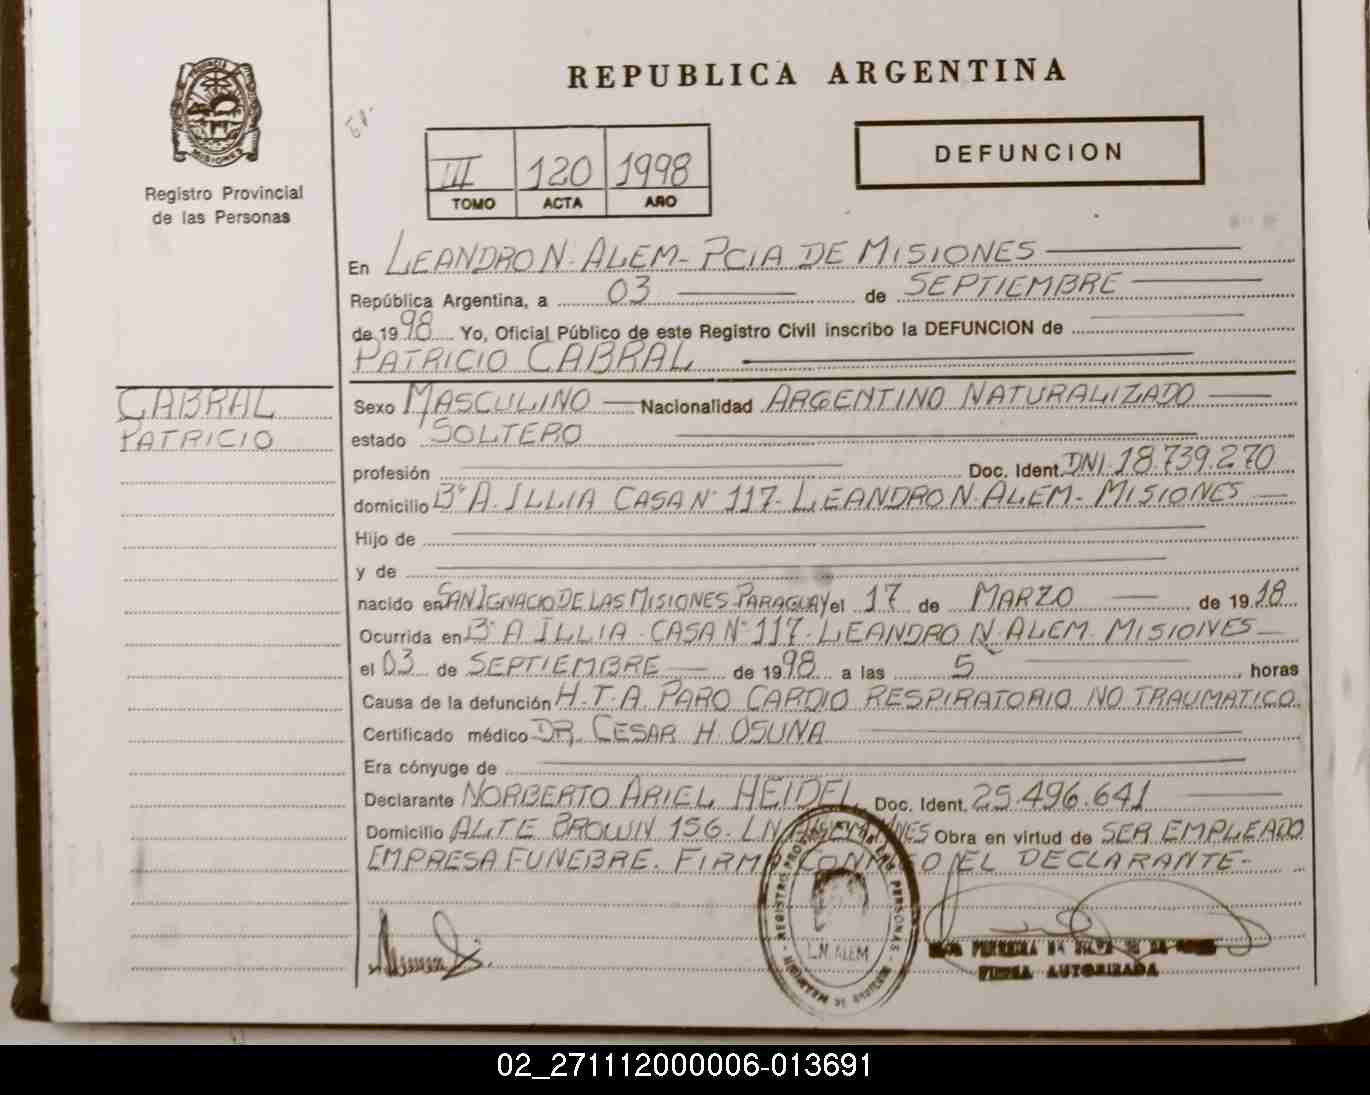 REPUBLICA ARGENTINA
PROVINCIA DE
MISIONES
Registro Provincial
de las Personas
III 120 1998
TOMO ACTA AÑO
DEFUNCION
En LEANDRO N. ALEM - PCIA DE MISIONES
República Argentina, a 03 de SEPTIEMBRE
de 1998 Yo, Oficial Público de este Registro Civil inscribo la DEFUNCION de
PATRICIO CABRAL
CABRAL
PATRICIO
Sexo MASCULINO Nacionalidad ARGENTINO NATURALIZADO
estado SOLTERO
profesión Doc. Ident. DNI 18.739.270
domicilio Bº A. ILLIA CASA Nº 117 - LEANDRO N. ALEM - MISIONES
Hijo de
y de
nacido en SAN IGNACIO DE LAS MISIONES PARAGUAY el 17 de MARZO de 1918
Ocurrida en Bº A ILLIA - CASA Nº 117 - LEANDRO N. ALEM - MISIONES
el 03 de SEPTIEMBRE de 1998 a las 5 horas
Causa de la defunción H.T.A PARO CARDIO RESPIRATORIO NO TRAUMATICO.
Certificado médico DR. CESAR H. OSUNA
Era cónyuge de
Declarante NORBERTO ARIEL HEIDEL Doc. Ident. 25.496.641
Domicilio ALTE BROWN 156 - LN ALEM MNES Obra en virtud de SER EMPLEADO
EMPRESA FUNEBRE. FIRMA CONMIGO EL DECLARANTE -
REGISTRO PROVINCIAL DE LAS PERSONAS
L.N. ALEM
FERREIRA DA SILVA DE
FIRMA AUTORIZADA
02_271112000006-013691